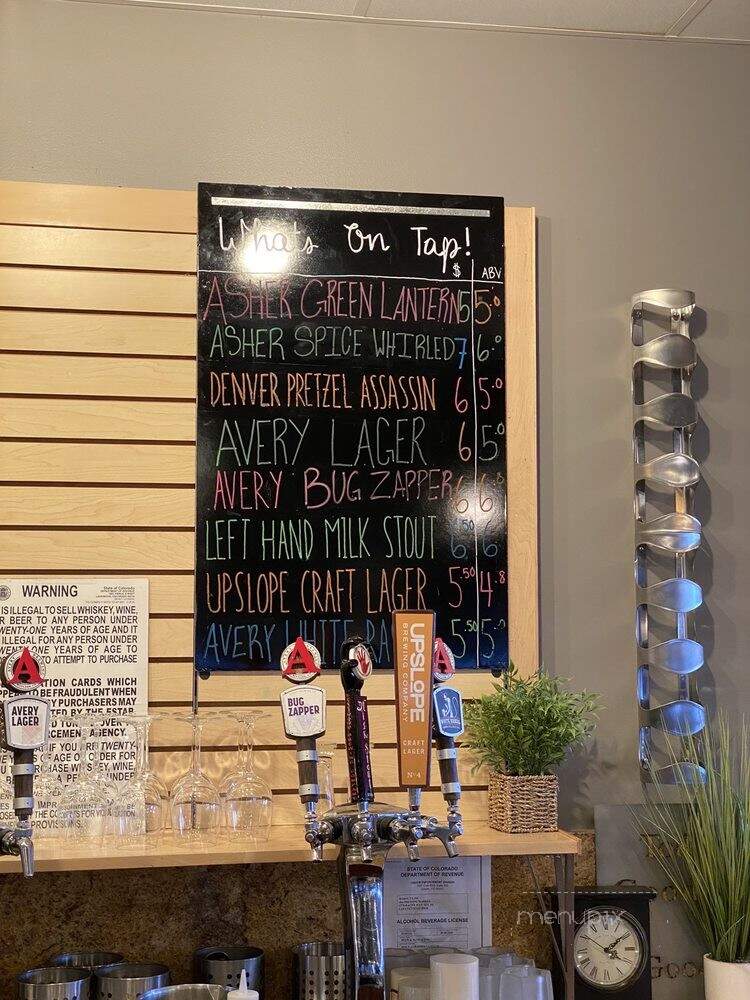 What's On Tap!
$ ABV
ASHER GREEN LANTERN 5 5.0
ASHER SPICE WHIRLED 7 6.0
DENVER PRETZEL ASSASSIN 6 5.0
AVERY LAGER 6 5.0
AVERY BUG ZAPPER 6 6.8
LEFT HAND MILK STOUT 6.50 6
UPSLOPE CRAFT LAGER 5.50 4.8
AVERY WHITE RA 5.50 5.0
State of Colorado
WARNING
IS ILLEGAL TO SELL WHISKEY, WINE,
R BEER TO ANY PERSON UNDER
WENTY-ONE YEARS OF AGE AND IT
ILLEGAL FOR ANY PERSON UNDER
YEARS OF AGE TO
TO ATTEMPT TO PURCHASE
TION CARDS WHICH
TO BE FRAUDULENT WHEN
PURCHASERS MAY
BY THE
AGENCY.
IF YOU ARE TWENTY-
AGE OR OLDER FOR
WHISKEY, WINE,
UNDER
PROVISIONS
A
AVERY
LAGER
A
BUG
ZAPPER
UPSLOPE
BREWING COMPANY
CRAFT
LAGER
Nº4
A
STATE OF COLORADO
DEPARTMENT OF REVENUE
ALCOHOL BEVERAGE LICENSE
menupix